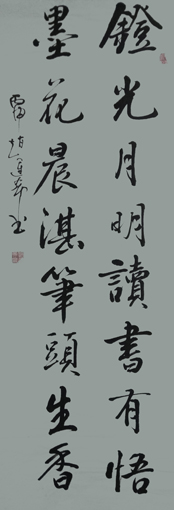 鐙光月明讀書有悟
墨花晨湛筆頭生香